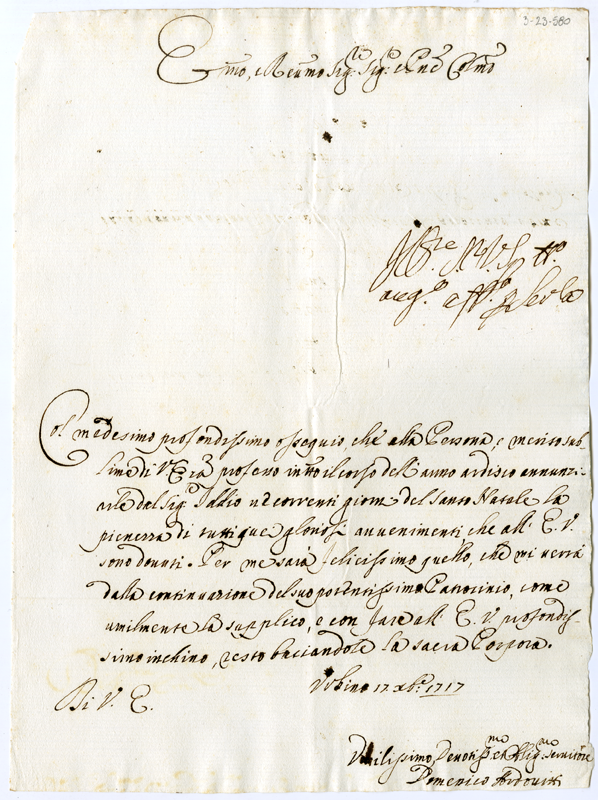 3-23-580
Emo, e Reumo Sig.re Sig.r e Pne Colmo
Col medesimo profondissimo ossequio, che alla Persona, e merito sub-
lime di V.ra Em.za professo in tto il corso dell'anno ardisco annunzi-
arle dal Sig.r Iddio ne correnti giorni del Santo Natale la
pienezza di tutti que gloriosi auuenimenti che all' E. V.
sono douuti. Per me sarà felicissimo quello, che mi uerrà
dalla continuazione del suo potentissimo Patrocinio, come
umilmente la supplico, e con fare all' E. V. profondis-
simo inchino, resto baciandole la sacra Porpora.
Vrbino 17 xbr. 1717
Di V. E.
Vmilissimo, Deuotis.mo et Oblig.mo seruitore
Domenico